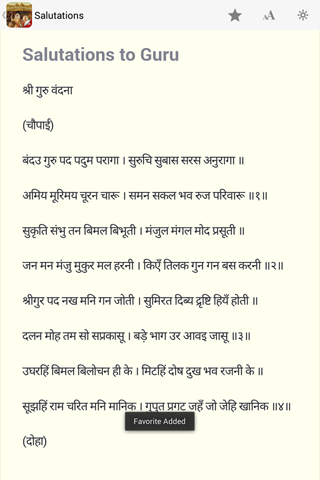 Salutations
Salutations to Guru
श्री गुरु वंदना
(चौपाई)
बंदउ गुरु पद पदुम परागा । सुरुचि सुबास सरस अनुरागा ॥
अमिय मूरिमय चूरन चारू । समन सकल भव रुज परिवारू ॥१॥
सुकृति संभु तन बिमल बिभूती । मंजुल मंगल मोद प्रसूती ॥
जन मन मंजु मुकुर मल हरनी । किएँ तिलक गुन गन बस करनी ॥२॥
श्रीगुर पद नख मनि गन जोती । सुमिरत दिब्य द्रृष्टि हियँ होती ॥
दलन मोह तम सो सप्रकासू । बड़े भाग उर आवइ जासू ॥३॥
उघरहिं बिमल बिलोचन ही के । मिटहिं दोष दुख भव रजनी के ॥
सूझहिं राम चरित मनि मानिक । गुपुत प्रगट जहँ जो जेहि खानिक ॥४॥
Favorite Added
(दोहा)